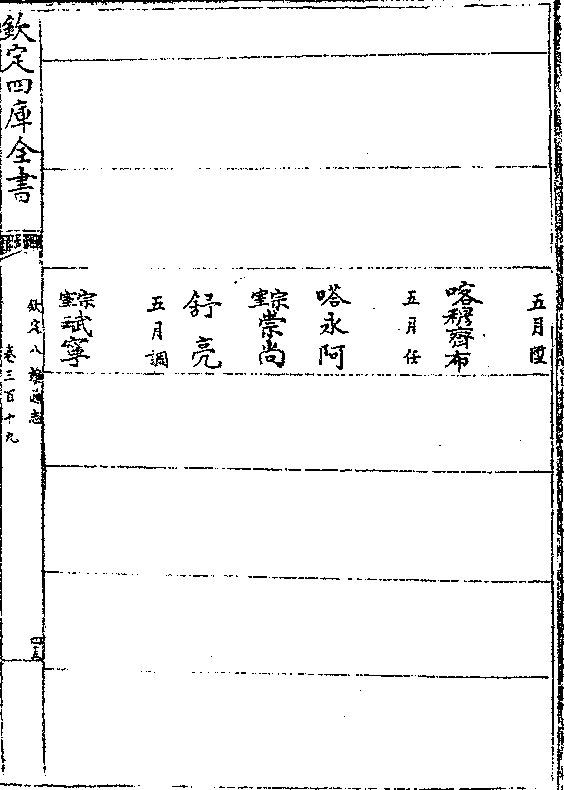 五月陞
喀穆齊布
五月任
嗒永阿
宗室崇尚
舒亮
五月調
宗室斌寧
欽定四庫全書
欽定八旗通志
卷三百十九